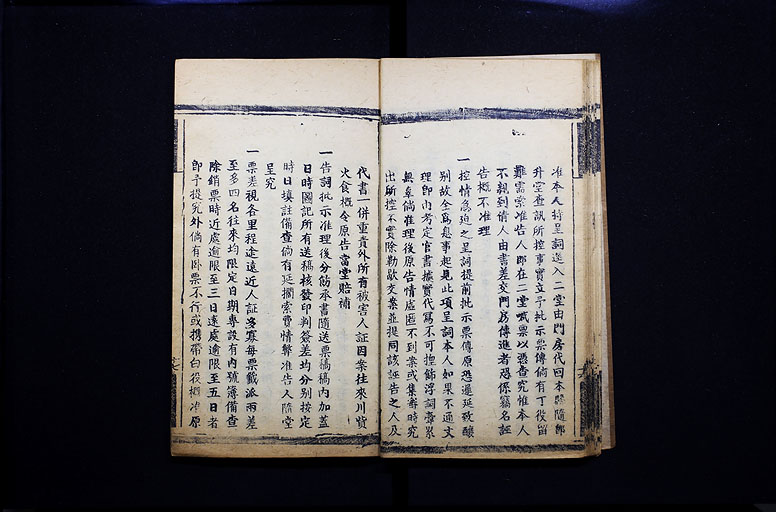 准本人持呈詞送入二堂由門房代回本縣隨即
升堂查訊所控事實立予批示票傳倘有丁役留
難需索准告人即在二堂喊禀以憑查究惟本人
不親到倩人由書差交門房傳進者恐係竊名誣
告概不准理
一控情急迫之呈詞提前批示票傳原恐遲延致釀
別故全為息事起見此項呈詞本人如果不通文
理即由考定官書據實代寫不可摭飾浮詞牽累
無辜倘准理後原告情虛匿不到案或集齊時究
出所控不實除勒歇交案並提同該誣告之人及
代書一併重責外所有被害人証因案往來川資
火食概令原告當堂賠補
一告詞批示准理後分飭承書隨送票稿稿內加蓋
日時圖記所有送稿核發印判簽差均分別按定
時日填註備查倘有延擱索費情弊准告人隨堂
呈究
一票差視各里程途遠近人証多寡每票籤派兩差
至多四名往來均限定日期專設有內號簿備查
除銷票時近處逾限至三日遠處逾限至五日者
即予提究外倘有卧票不行或携帶白役概准原